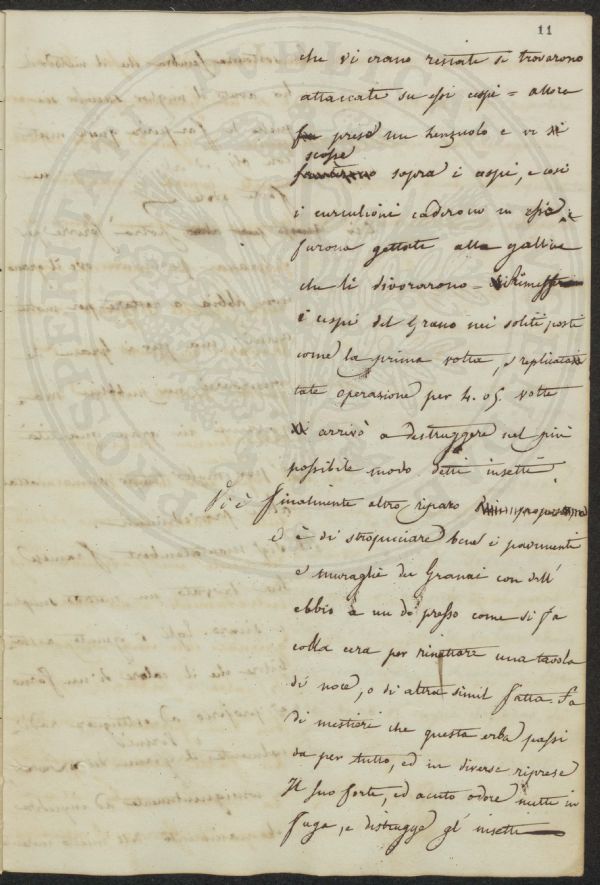 11
che vi erano restate si trovarono
attaccati su essi cespi = allora
presò un lenzuolo e vi
scosse
sopra i cespi, e così
i curculioni caderono in esso, e
furono gettati alle galline
che li divorarono = Rimessi
i cespi del Grano nei soliti posti
come la prima volta, e replicata
tale operazione per 4. o 5. volte
si arrivò a destruggere nel più
possibile modo detti insetti
Vi è finalmente altro riparo
e è di stropicciare bene i pavimenti
e muraglie dei Granai con dell'
ebbio a un di presso come si fa
colla cera per rinettare una tavola
di noce, o di altra simil fatta. Fa
di mestieri che questa erba passi
da per tutto, ed in diverse riprese
Il suo forte, ed acuto odore mette in
fuga, e distrugge gl' insetti
PROSPERITATI PUBLICAE